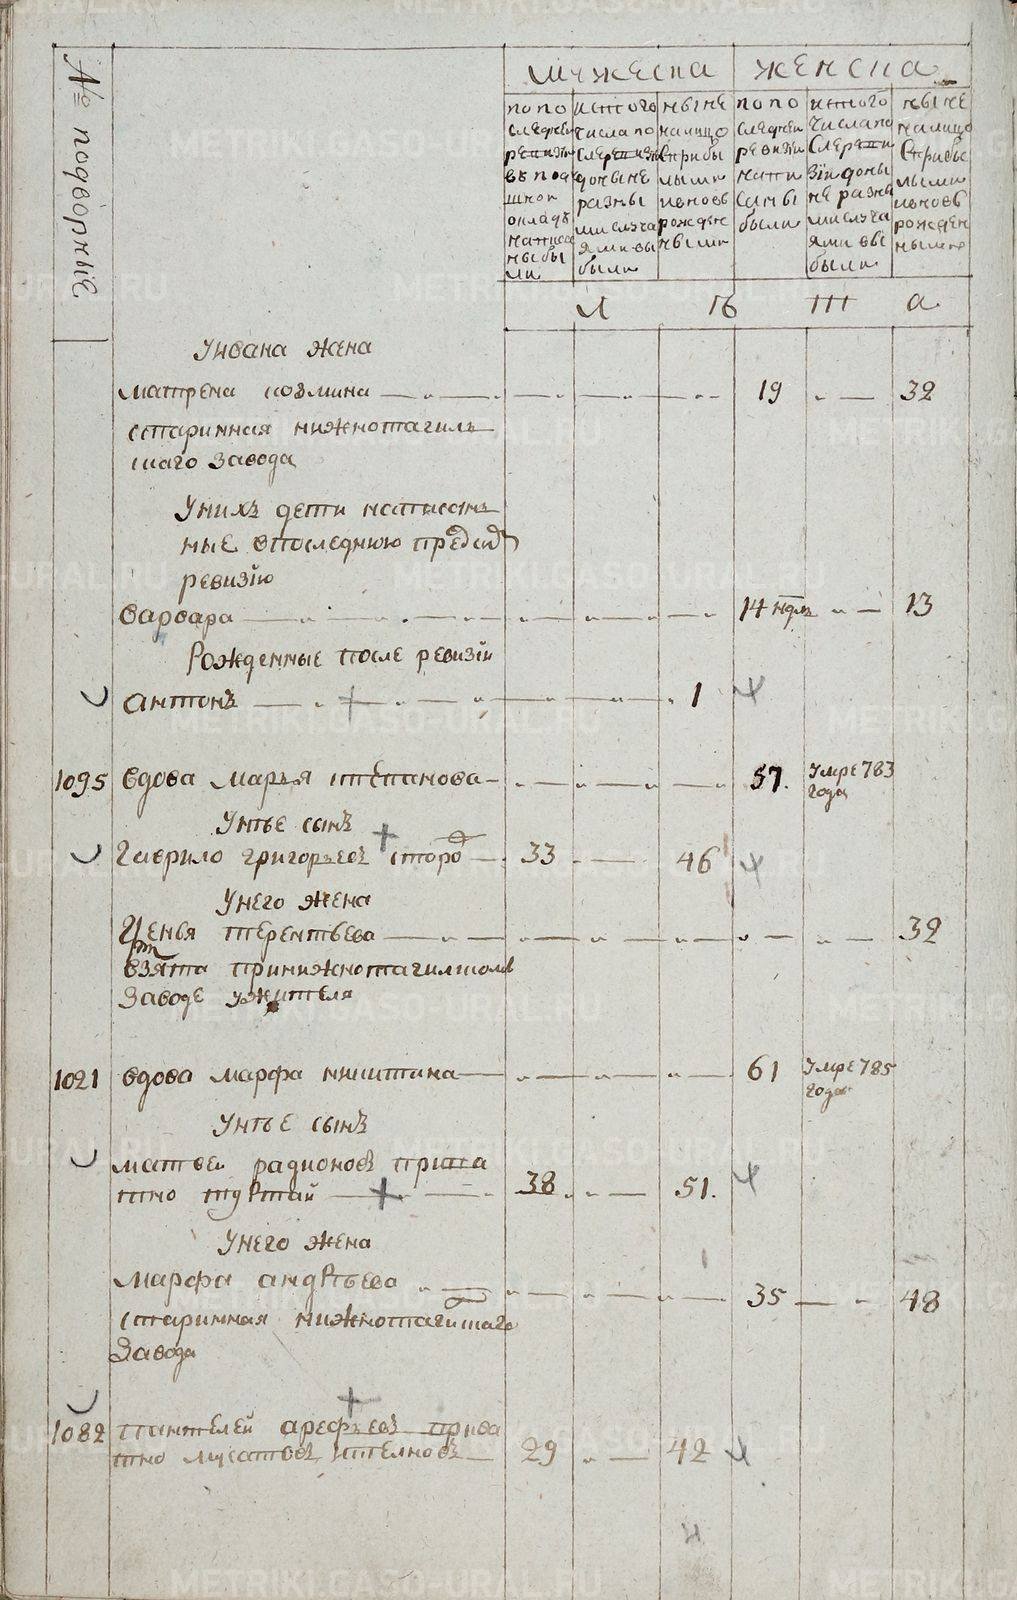 № подворные
мужеска
женска
по по
следней
ревизіи
въ под
шной
окладъ
написа
ны бы
ли
ис того
числа по
следне
до ныне
разны
ми случа
ями вы
были
ныне
на лицо
с прибы
лыми
и вновь
рожден
ными
по по
следней
ревизіи
написаны
были
ис того
числа по
следней
зіи до ны
не разны
ми случа
ями вы
были
ныне
на лицо
с прибы
лыми
и вновь
рожден
ными
л ѣ т а
У ивана жена
матрена козмина 19 32
старинная нижнотагиль
скаго завода
У них дети написан
ные в последнюю пред сид
ревизію
варвара 14 ндль 13
Рожденные после ревизіи
антонъ 1
1095 вдова марья степанова 57. умре 783
года
У нее сынъ
Гаврило григорьевъ 33 46
У него жена
Ксенья терентьева 32
взята при нижнотагилском
заводе у жителя
1021 вдова марфа никитина 61 умре 785
года
У нее сынъ
матвеи радионовъ
38 51.
У него жена
марфа андреева 35 48
старинная нижнотагилскаго
завода
1082 пантелей арефьевъ
29 42
METRIKI.GASO-URAL.RU